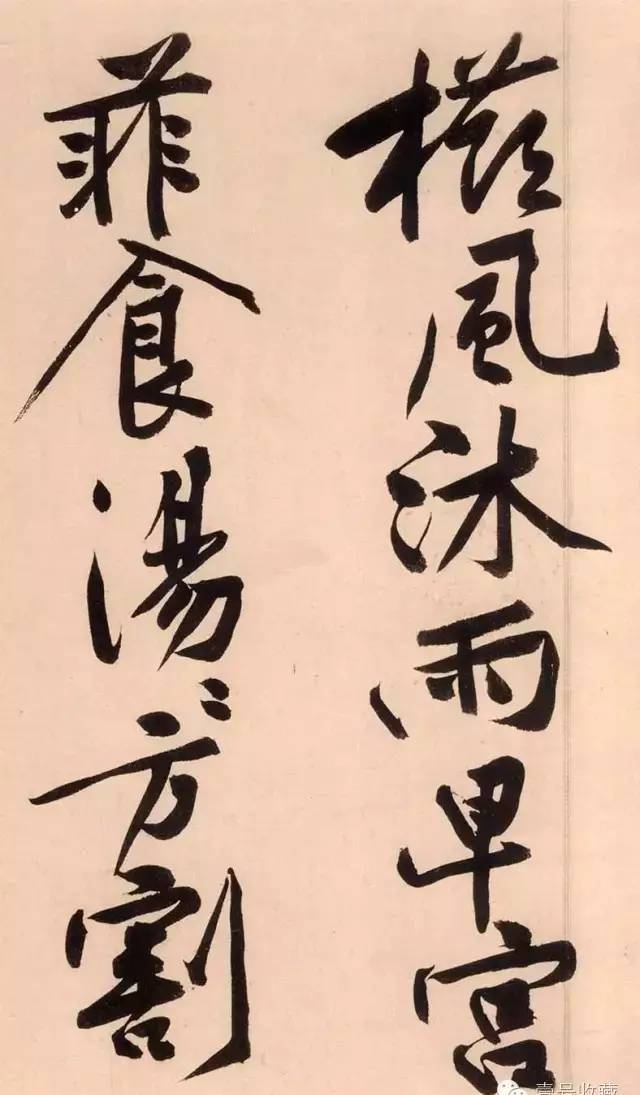 櫛風沐雨卑宮
菲食湯〻方割
壹号收藏